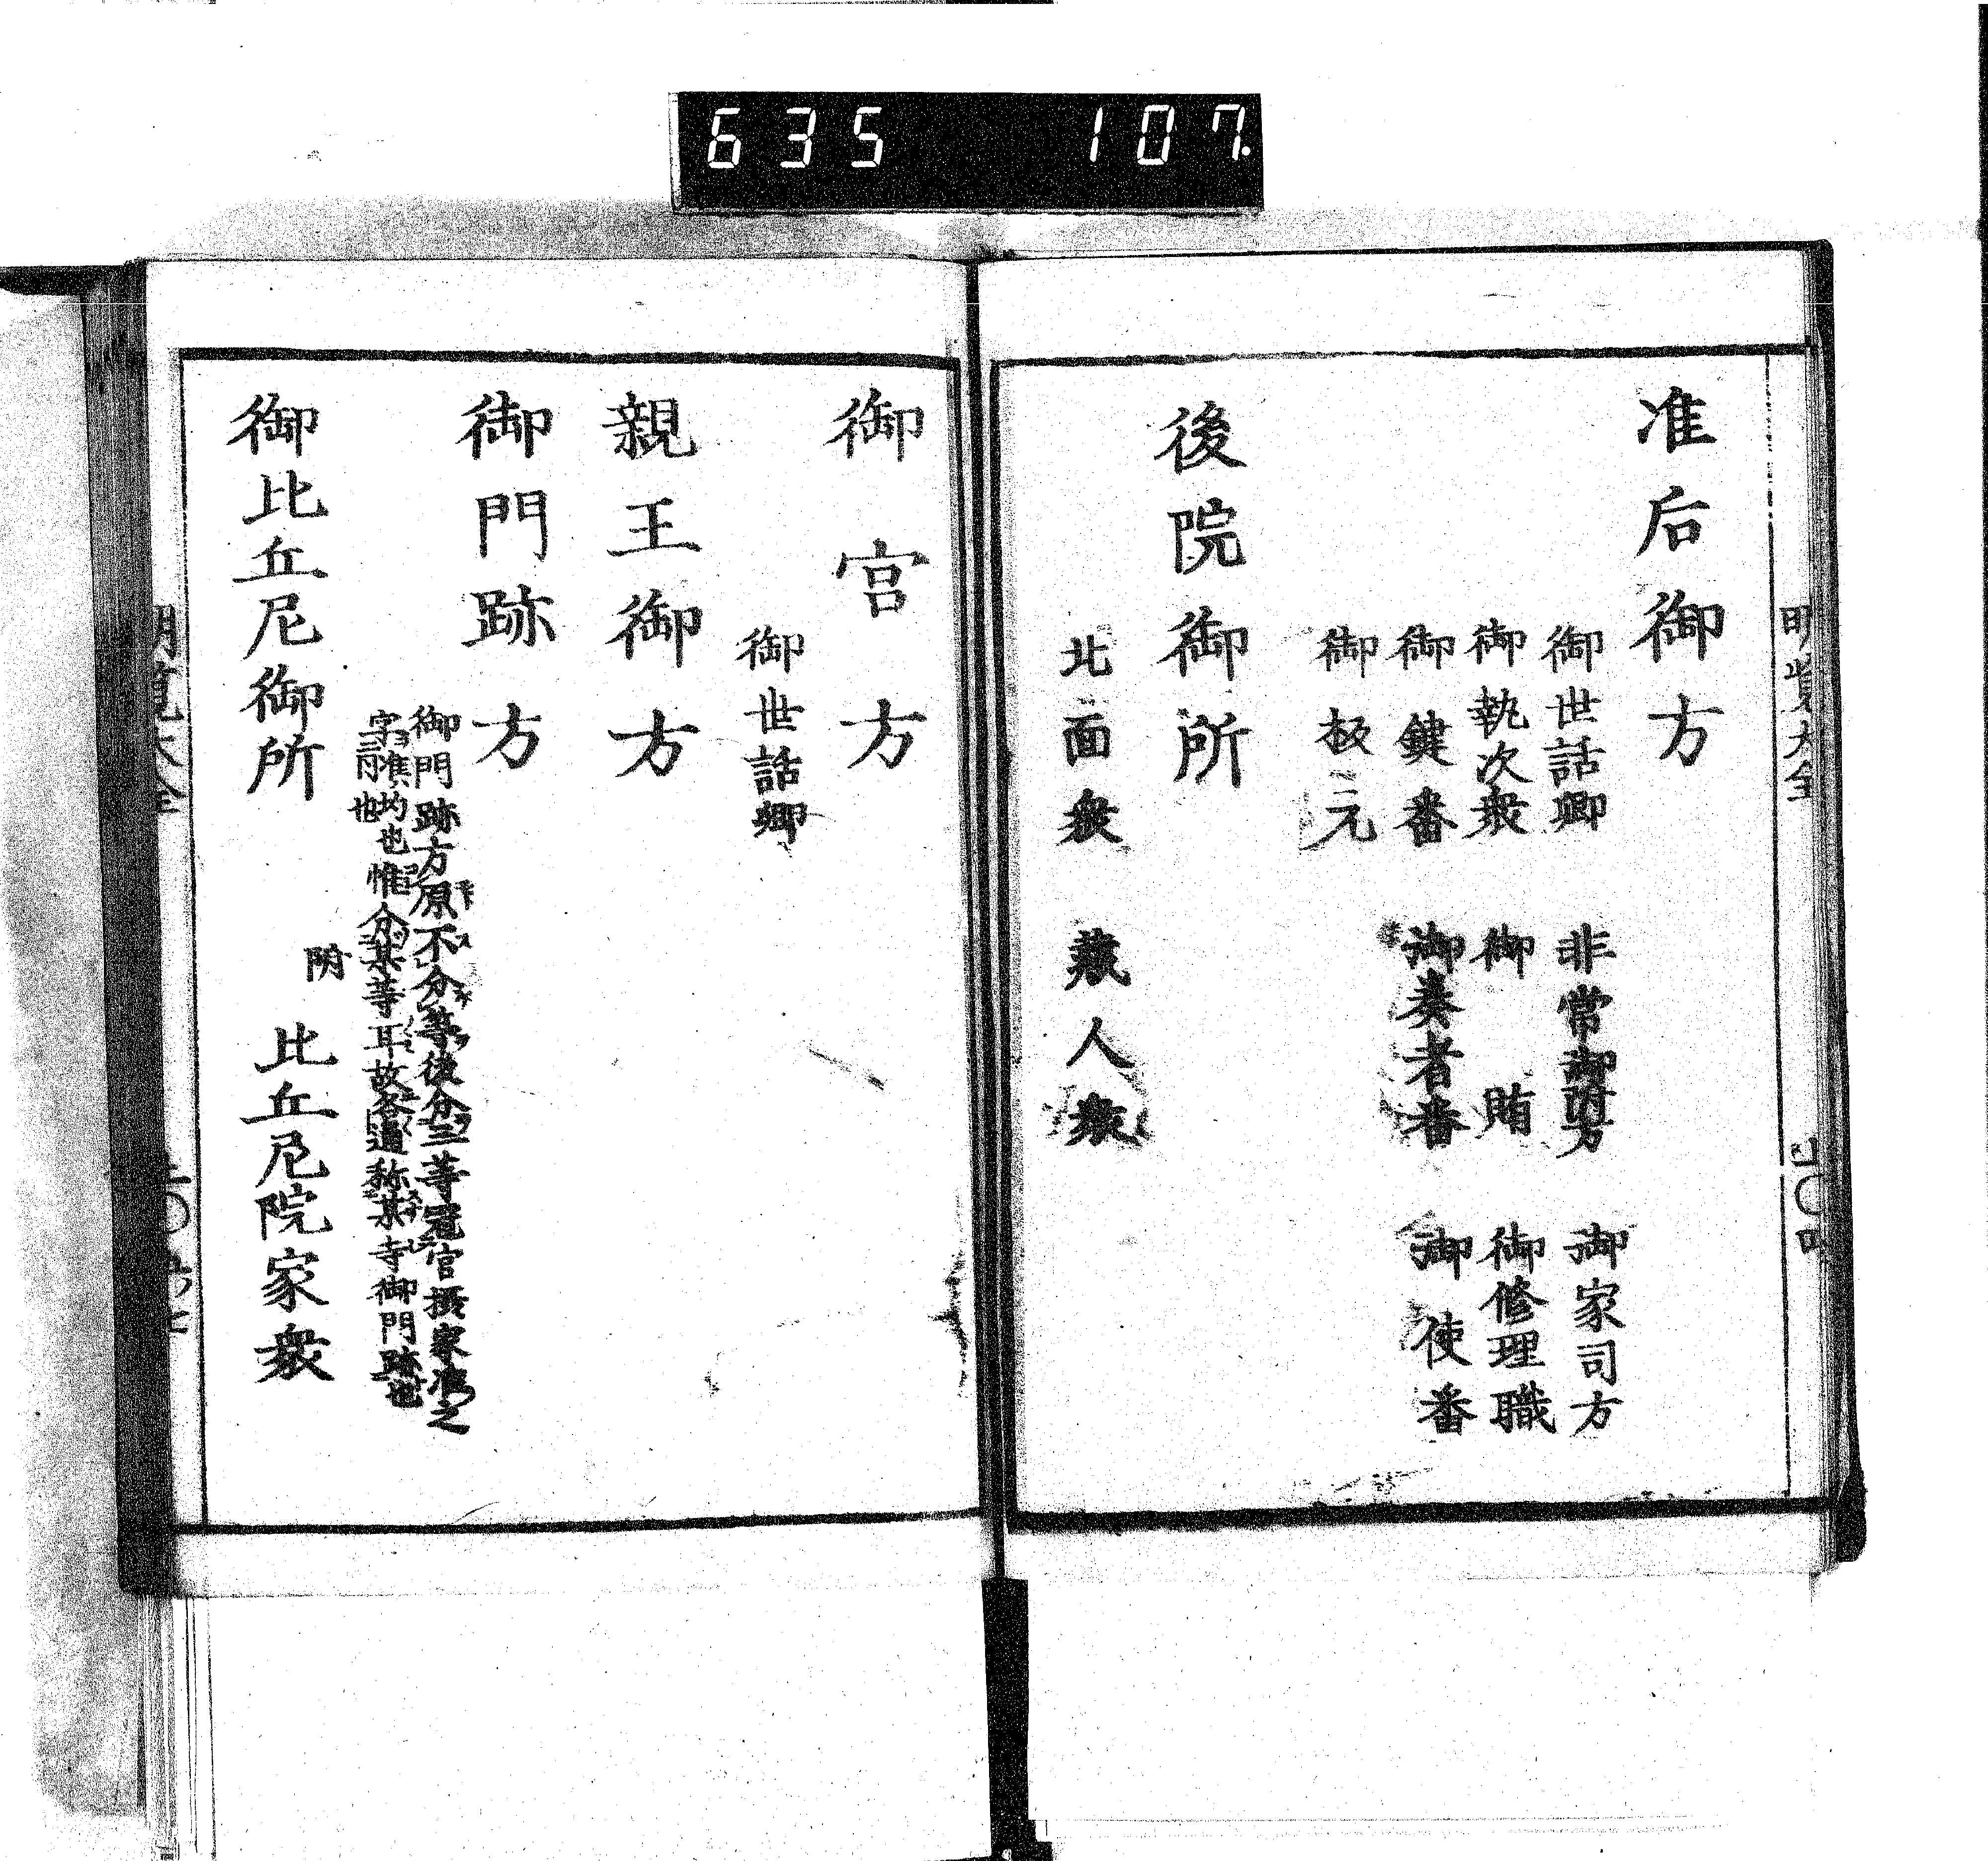 635 107
准后御方
御世話卿 非常御附方 御家司方
御執次衆 御賄 御修理職
御鍵番 御奏者番 御使番
御板元
後院御所
北面衆 蔵人衆
御宮方
御世話卿
親王御方
御門跡方
御門跡方原不分等後分三等冠官摂家准之
字准均也惟分某等耳故各通称某寺御門跡也
御比丘尼御所 附 比丘尼院家衆